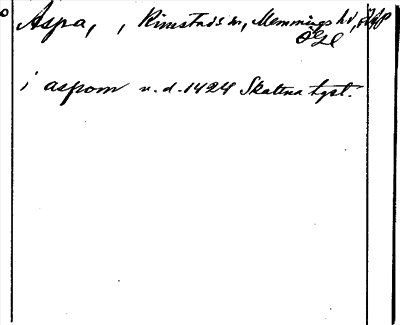 Aspa, , Rimstads sn, Memmings hd,
ÖGL
i aspom u. d. 1424 Skatena